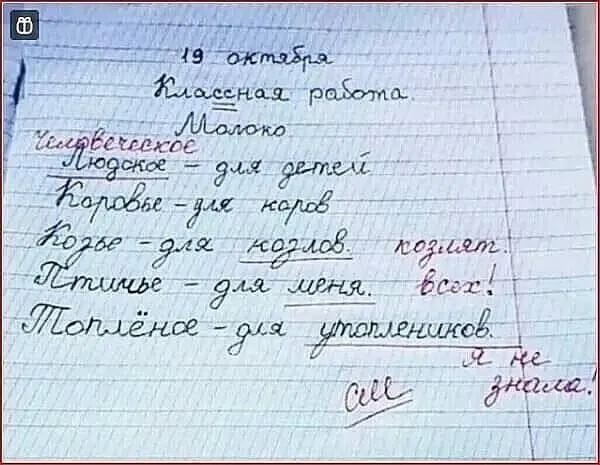 19 октября
Классная работа.
Молоко
Человеческое
Людское - для детей
Коровье - для коров
Козье - для козлов. козлят.
Птичье - для меня. всех!
Топлёное - для утоплеников.
Я не
знала!
См